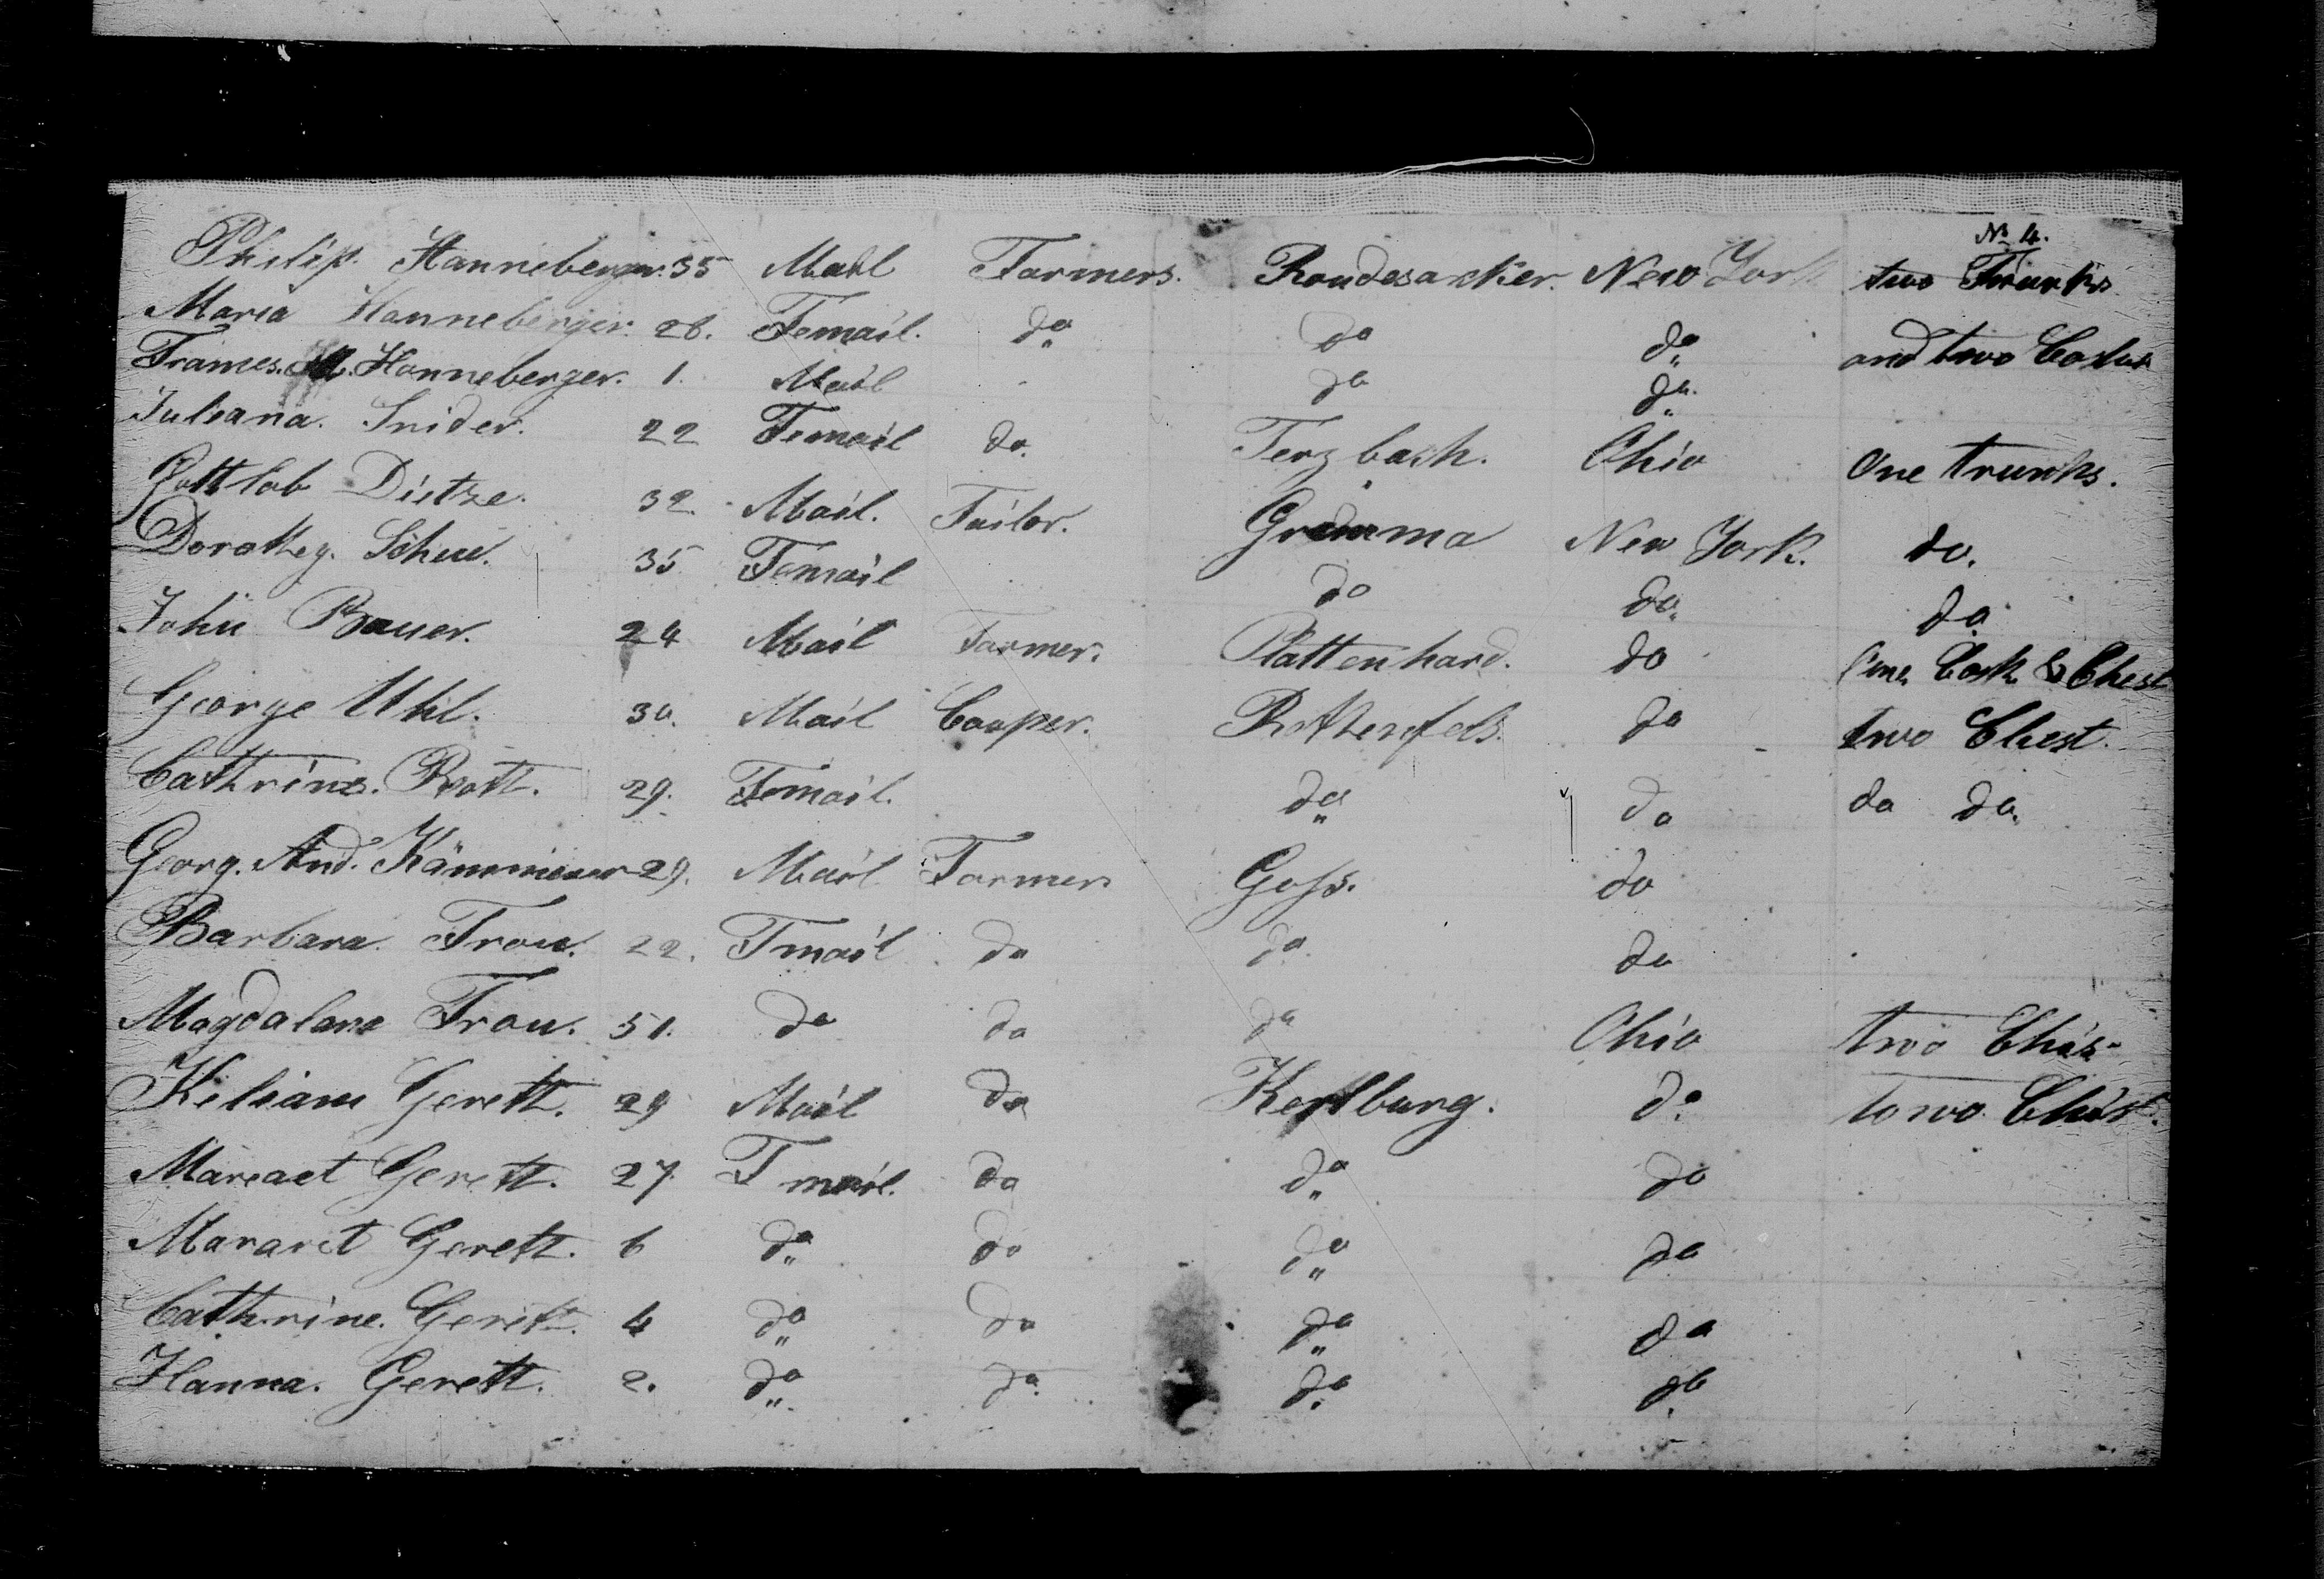 No 4.
Philip. Hanneberger. 35 Mail Farmers. Randesacker. New York two Trunks
Maria Hanneberger. 26. Femail. do do do and two Casks
Frances. M. Hanneberger. 1. Mail - do do
Juliana. Snider. 22 Femail do. Terzbach. Ohio One trunks.
Gottlob Dietze. 32. Mail. Tailor. New York. do.
Dorothey. Scheu. 35 Femail do do. do
John Bauer. 24 Mail Farmer. Plattenhard. do One Cask & Chest
George Uhl. 30. Mail Cooper. Rothenfels. do two Chest.
Cathrine. Rott. 29. Femail. do do do do.
Georg. And. 29. Mail Farmer Goss. do
Barbara Frou. 22. Fmail do do. do
Magdalana Frou. 51. do do do Ohio two
Keliam Gerett. 29 Mail do do towo
Mareaet Gerett. 27. Fmail. do do do
Mararet Gerett. 6 do do do do
Cathrine. Gerett. 4 do do do do
Hanna. Gerett. 2. do do. do do